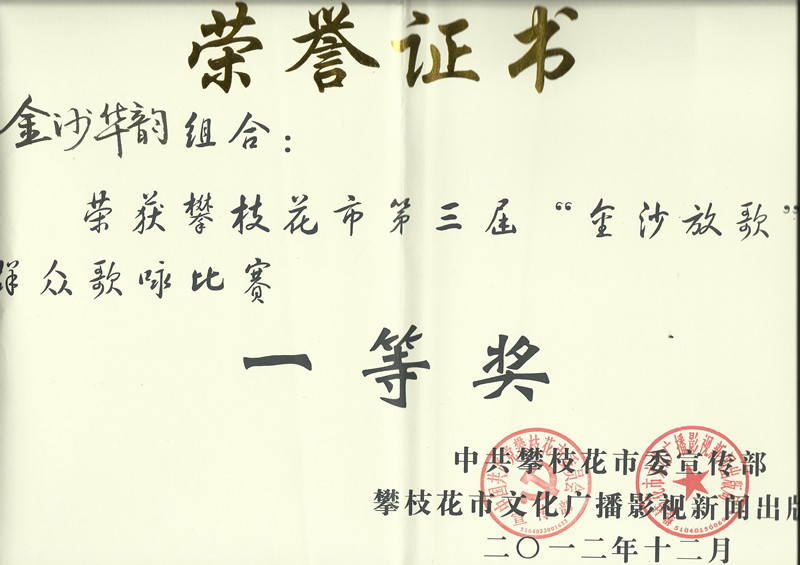 荣誉证书
金沙华韵组合：
荣获攀枝花市第三届“金沙放歌”
群众歌咏比赛
一等奖
中共攀枝花市委宣传部
攀枝花市文化广播影视新闻出版
二〇一二年十二月